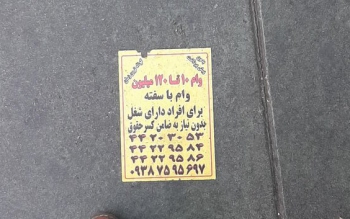 وام ۱۰ تا ۱۲۰ میلیون
وام با سفته
برای افراد دارای شغل
بدون نیاز به ضامن کسر حقوق
۴۴۲۰۳۰۵۳
۴۴۲۲۹۵۸۴
۴۴۲۲۹۵۸۶
۰۹۳۸۷۵۹۵۶۹۷